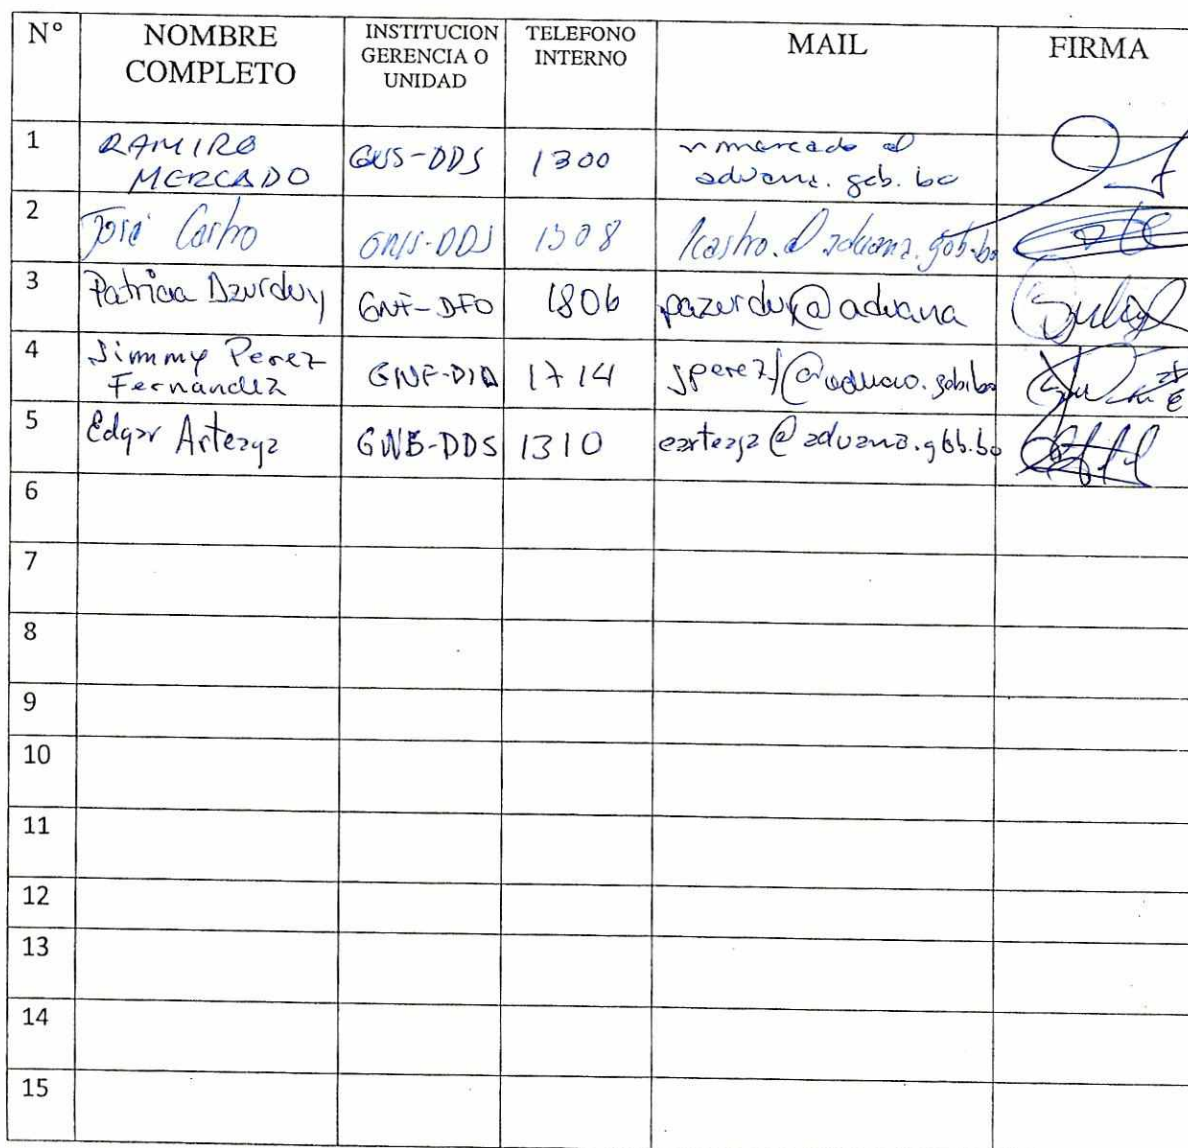 N° NOMBRE COMPLETO INSTITUCION GERENCIA O UNIDAD TELEFONO INTERNO MAIL FIRMA
1 RAMIRO MERCADO GNS-DDS 1300 rmercado@aduana.gob.bo
2 José Castro GNS-DDS 1308 @aduana.gob.bo
3 Patricia Azurduy GNF-DFO 1806 pazurduy@aduana
4 Jimmy Perez Fernandez GNF-DIA 1714 jperezf@aduana.gob.bo
5 Edgar Arteaga GNS-DDS 1310 earteaga@aduana.gob.bo
6
7
8
9
10
11
12
13
14
15